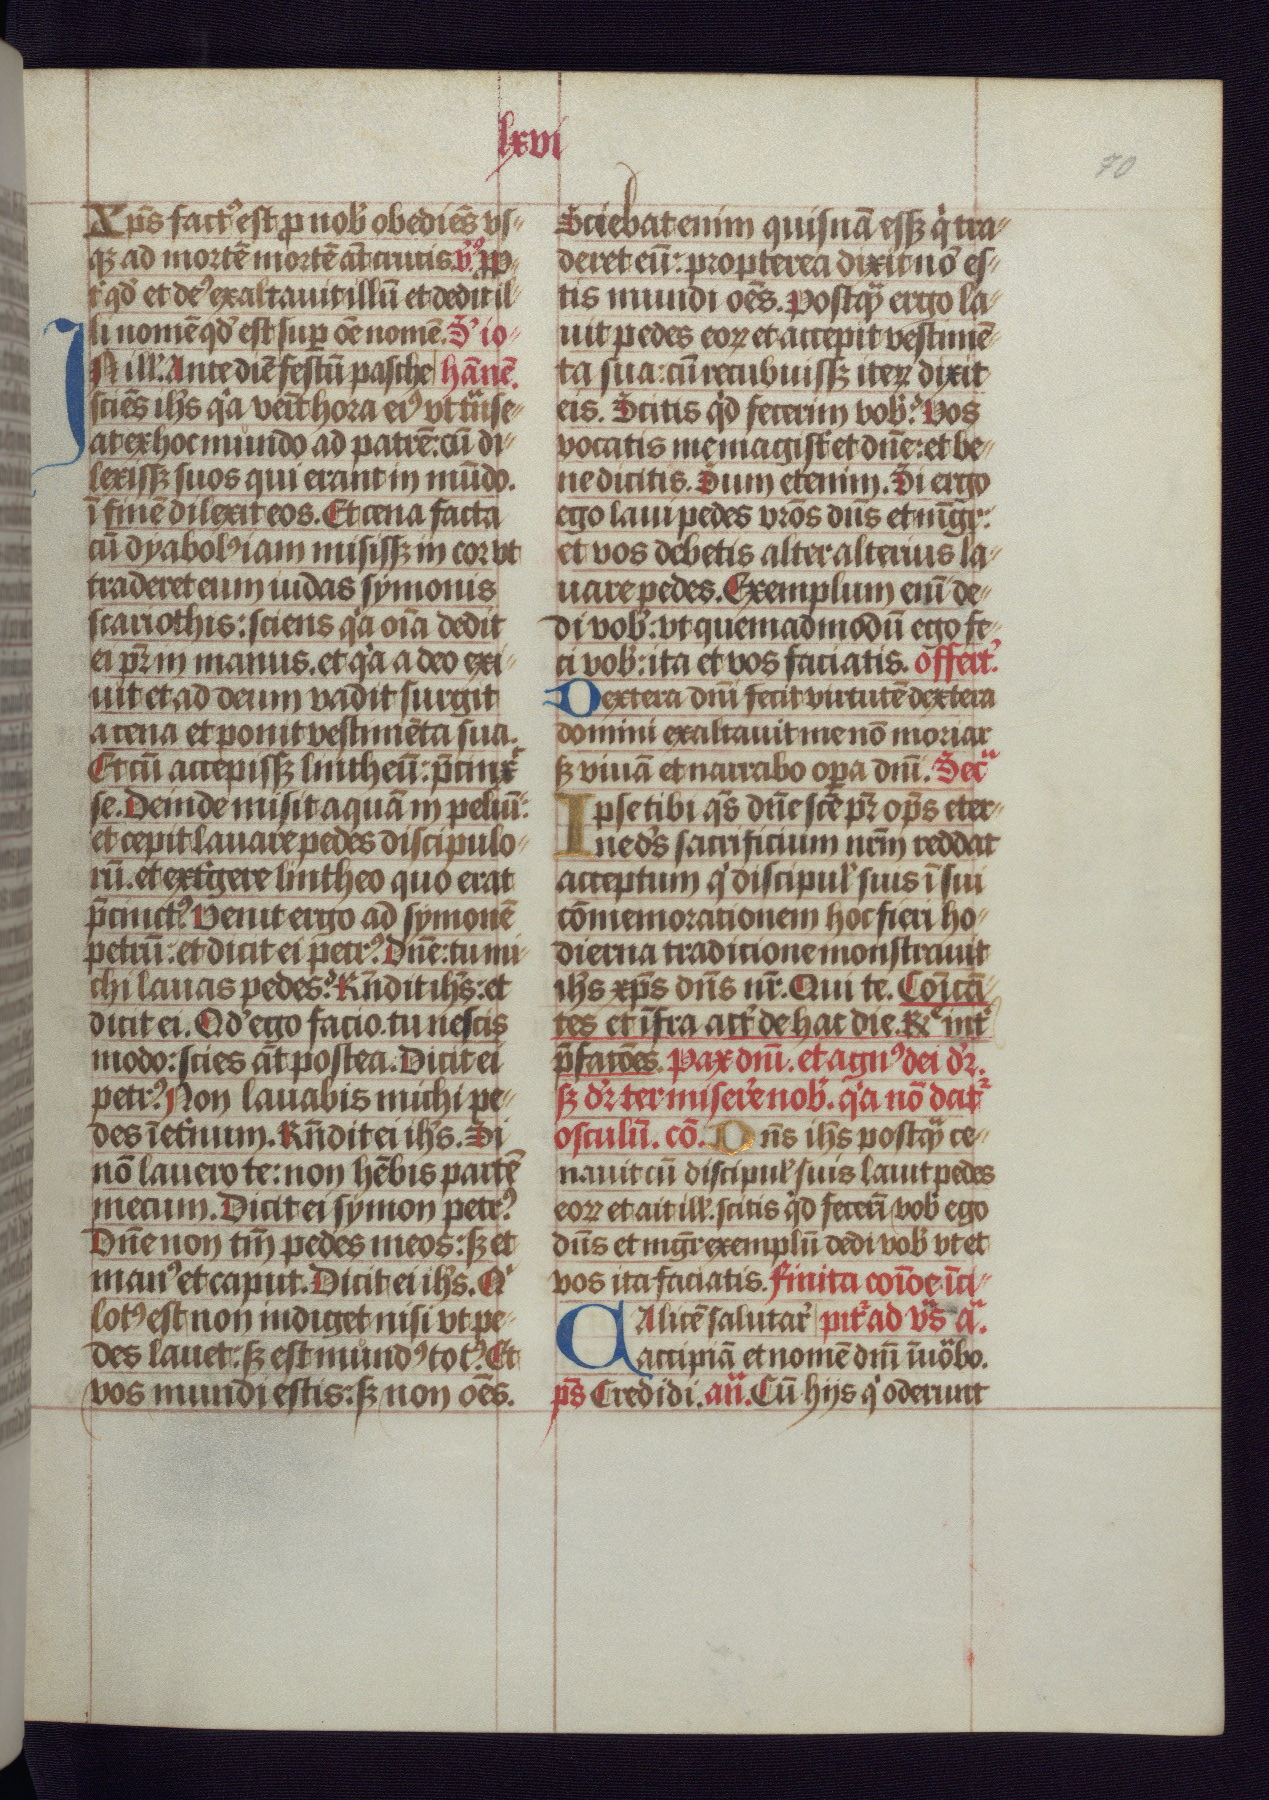 lxvi
70
Xp̄s fact᷒ est p nob̾ obediēs vs-
qȝ ad mortē mortē aūt crucis. v᷒ Pp-
t̾ qd̾ et de᷒ exaltauit illū et dedit il-
li nomē qd̾ est sup om̄e nomē. S̾ io-
IN ill̾. Ante diē festū pasche hānē.
sciēs ih̄s q̾a venit hora ei᷒ vt tn̄se-
at ex hoc mundo ad patrē: cū di-
lexissȝ suos qui erant in mūdo.
ī finē dilexit eos. Et cena facta
cū dyabol᷒ iam misissȝ in cor vt
traderet eum iudas symonis
scariothis: sciens q̾a oīa dedit
ei pr̄ in manus. et q̾a a deo exi-
uit et ad deum vadit surgit
a cena et ponit vestimēta sua.
Et cū accepissȝ lintheū: p̄cinx̾
se. Deinde misit aquā in peluī:
et cepit lauare pedes discipulo-
rū. et ext̾gere lintheo quo erat
p̄cinct᷒. Venit ergo ad symonē
petrū: et dicit ei petr᷒. Dn̄e: tu mi-
chi lauas pedes? Rn̄dit ih̄s: et
dicit ei. Qd̾ ego facio. tu nescis
modo: scies aūt postea. Dicit ei
petr᷒. Non lauabis michi pe-
des ī et̾num. Rn̄dit ei ih̄s. Si
nō lauero te: non hēbis partē
mecum. Dicit ei symon petr᷒.
Dn̄e non tm̄ pedes meos: sȝ et
man᷒ et caput. Dicit ei ih̄s. Q̾
lot᷒ est non indiget nisi vt pe-
des lauet: sȝ est mund᷒ tot᷒. Et
vos mundi estis: sȝ non oēs.
Sciebat enim quisnā essȝ q̾ tra-
deret eū: propterea dixit nō es-
tis mundi oēs. Postq̄ ergo la-
uit pedes eoꝝ et accepit vestimē-
ta sua: cū recubuissȝ iteꝝ dixit
eis. Scitis q̾d fecerim vob̾? Vos
vocatis me magist̾ et dn̄e: et be-
ne dicitis. Sum etenim. Si ergo
ego laui pedes vrōs dn̄s et mḡr:
et vos debetis alter alterius la-
uare pedes. Exemplum enī de-
di vob̾: vt quemadmodū ego fe-
ci vob̾: ita et vos faciatis. offert̾.
Dextera dnī fecit virtutē dextera
domini exaltauit me nō moriar
sȝ viuā et narrabo opa dnī. Sec̾
Ipse tibi q̄s dn̄e scē pr̄ op̄s eter-
ne de᷒s sacrificium nrm̄ reddat
acceptum q̾ discipul̾ suis ī sui
cōmemorationem hoc fieri ho-
dierna traditione monstrauit
ih̄s xp̄s dn̄s nr̄. Qui te. Coīcā-
tes et īfra act̾ de hac die. Re᷒ int̾
p̄fatōes. Pax dnī. et agn᷒ dei dr̄.
sȝ dr̄ ter miserē nob̾. q̾a nō dat̾
osculū. cō. Dn̄s ih̄s postq̄ ce-
nauit cū discipul̾ suis lauit pedes
eoꝝ et ait ill̾. scitis q̾d fecerī vob̾ ego
dn̄s et mḡr exemplū dedi vob̾ vt et
vos ita faciatis. finita coīoe īci-
CAlicē salutar̾ pit̾ ad v̄s a᷒.
accipiā et nomē dnī īuōbo.
ps̄ Credidi. an̄. Cū hijs q̾ oderunt